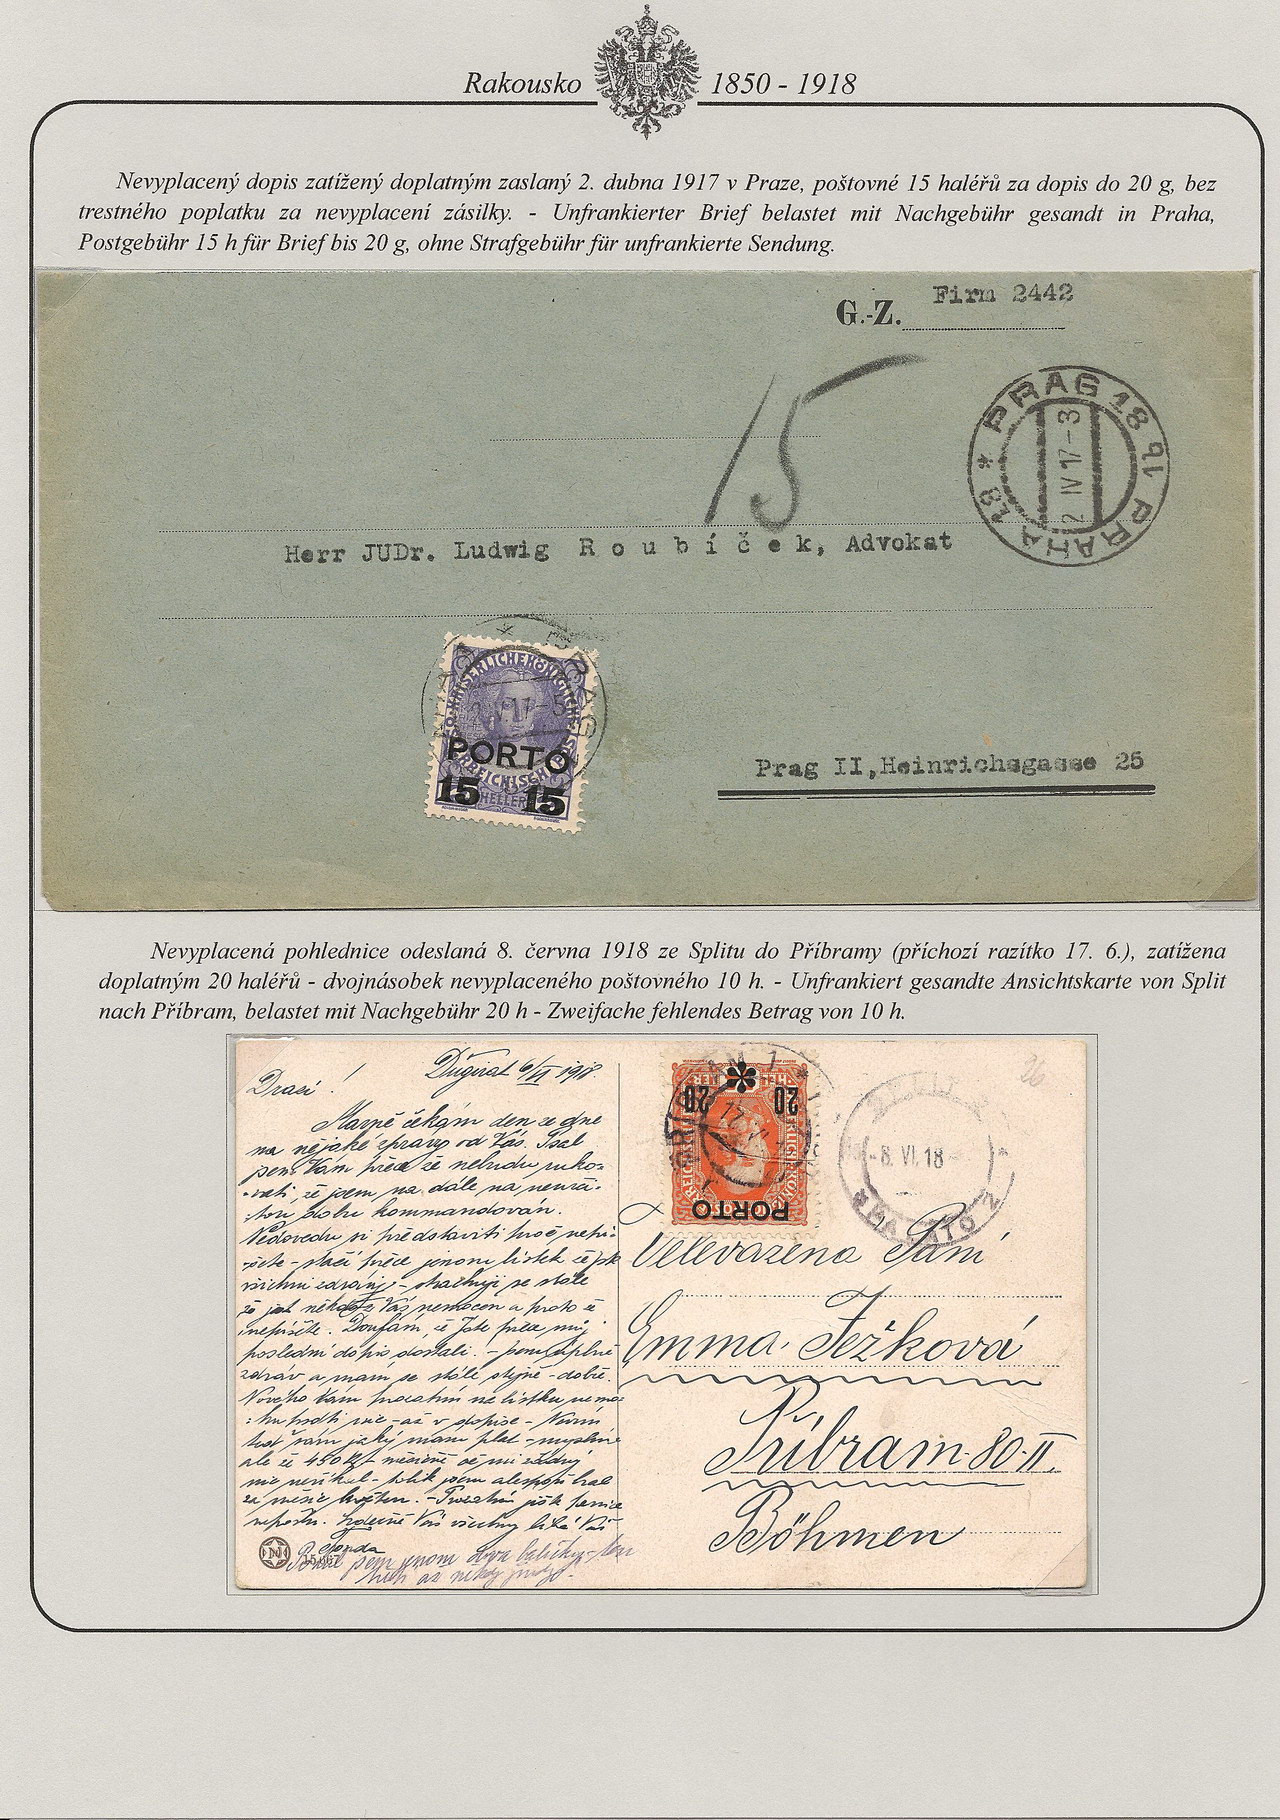 Rakousko 1850 - 1918
Nevyplacený dopis zatížený doplatným zaslaný 2. dubna 1917 v Praze, poštovné 15 haléřů za dopis do 20 g, bez
trestného poplatku za nevyplacení zásilky. - Unfrankierter Brief belastet mit Nachgebühr gesandt in Praha,
Postgebühr 15 h für Brief bis 20 g, ohne Strafgebühr für unfrankierte Sendung.
G.-Z. Firm 2442
15
* PRAG 18 * 91 PRAHA 18
2 IV 17-3
Herr JUDr. Ludwig Roubíček, Advokat
KAISERLICHE KÖNIGLICHE
PORTO
15 HELLER 15
Prag II, Heinrichsgasse 25
Nevyplacená pohlednice odeslaná 8. června 1918 ze Splitu do Příbramy (příchozí razítko 17. 6.), zatížena
doplatným 20 haléřů - dvojnásobek nevyplaceného poštovného 10 h. - Unfrankiert gesandte Ansichtskarte von Split
nach Příbram, belastet mit Nachgebühr 20 h - Zweifache fehlendes Betrag von 10 h.
6/VI 1918.
Drazí!
Marně čekám den ze dne
na nějaké zprávy od Vás. Psal
jsem Vám přece že nebudu ruko-
vati, že jsem na dále na neurči-
tou dobu kommandován.
Nedovedu si představiti proč nepí-
šete - stačí přece jenom lístek že jste
všichni zdrávi - strachuji se stále
že je někdo z Vás nemocen a proto že
nepíšete. Doufám, že jste přece můj
poslední dopis dostali. - jsem úplně
zdráv a mám se stále stejně - dobře.
Nového Vám prozatím na lístku nemo-
hu víc - až v dopise -
teď sám jaký mám plat - myslím
ale že 450 K měsíčně
za měsíc květen. - Prozatím
Srdečně Vás všechny líbá Váš
Tonda
20 20
PORTO
-8. VI. 18-
SPALATO 2
Velevážená Paní
Emma Ježková
Příbram 80-II.
Böhmen
26